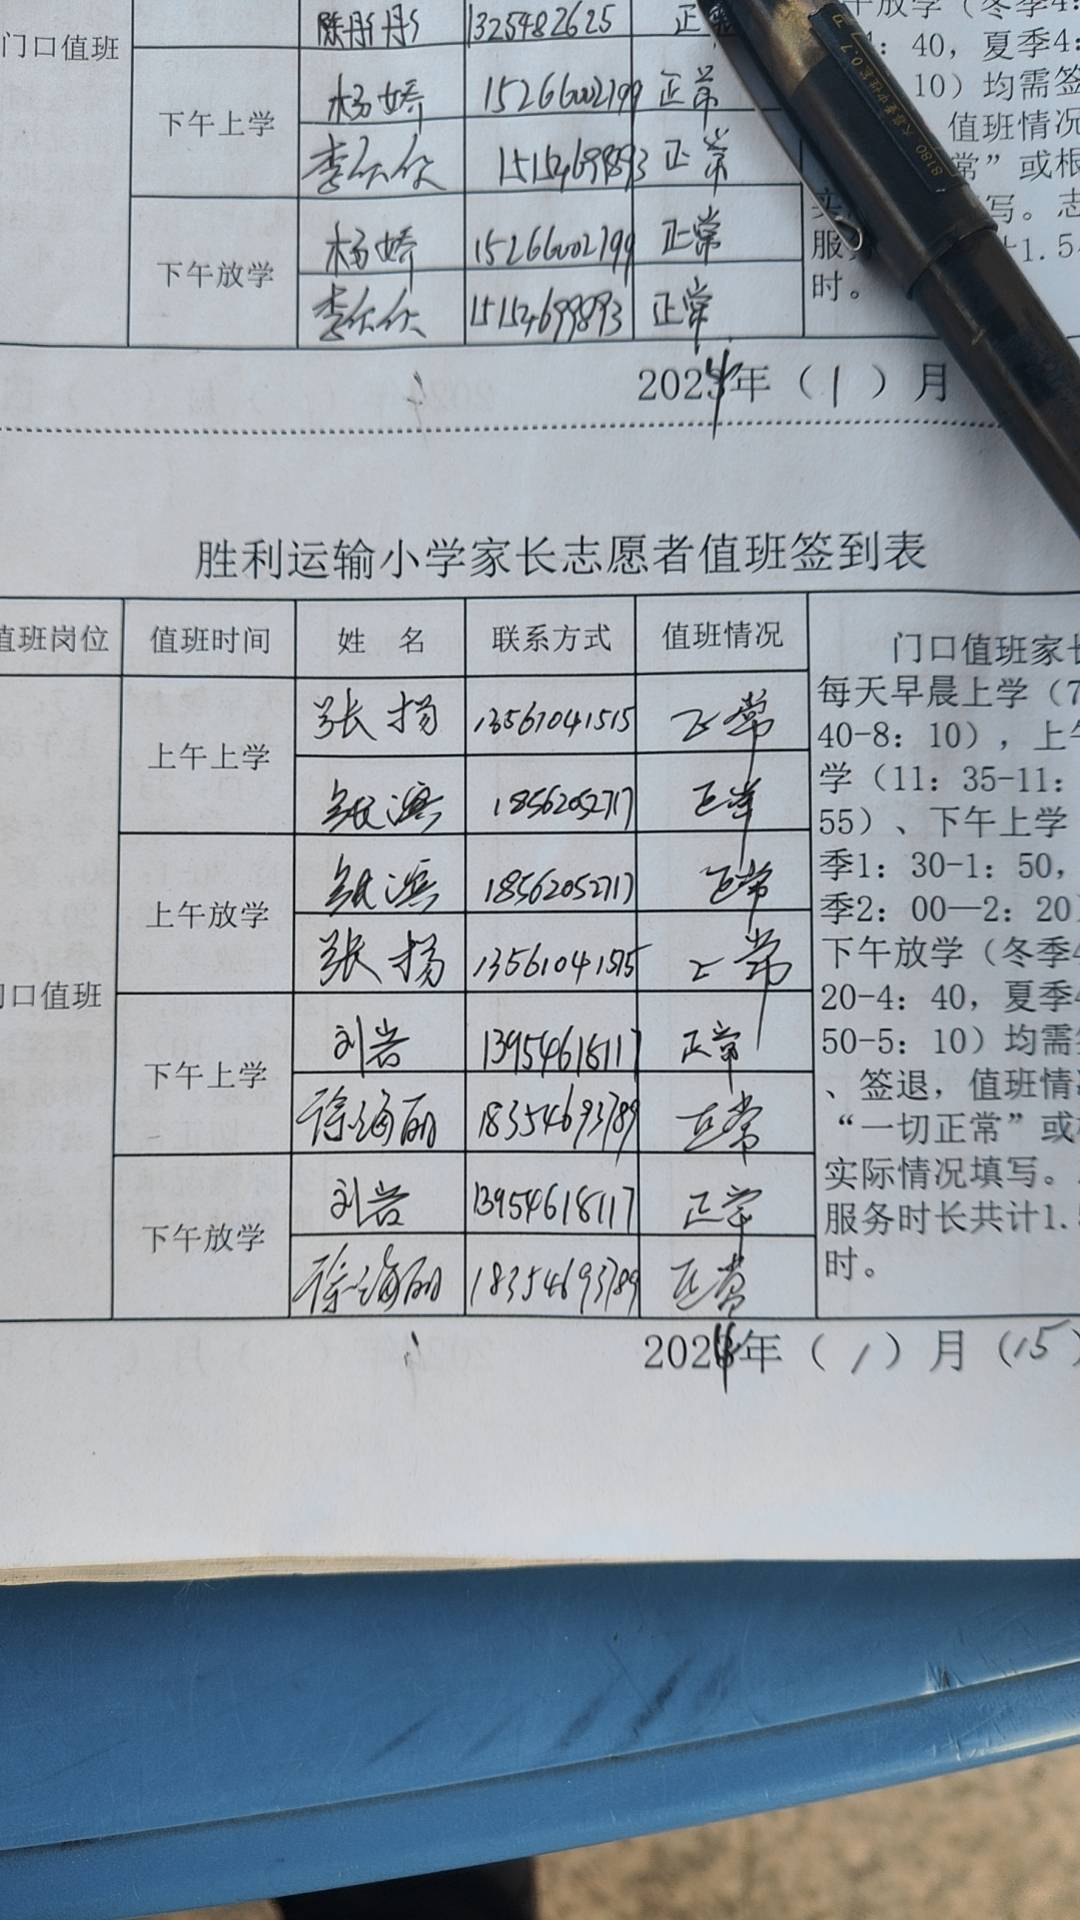 陈丹丹 1325482625 正常
门口值班
下午上学 杨娇 15266002799 正常
李欣欣 15154699893 正常
下午放学 杨娇 15266002799 正常
李欣欣 15154699893 正常
午放学（冬季4：
：40，夏季4：
10）均需签
值班情况
常”或根
写。志
服
1.5
时。
2024年（1）月
胜利运输小学家长志愿者值班签到表
值班岗位 值班时间 姓 名 联系方式 值班情况
门口值班
上午上学 张扬 13561041515 正常
滨 18562052717 正常
上午放学 滨 18562052717 正常
张扬 13561041515 正常
下午上学 刘岩 13954618117 正常
徐海丽 18354693789 正常
下午放学 刘岩 13954618117 正常
徐海丽 18354693789 正常
门口值班家长
每天早晨上学（7
40-8：10），上午
学（11：35-11：
55）、下午上学
季1：30-1：50，
季2：00—2：20
下午放学（冬季4
20-4：40，夏季4
50-5：10）均需
、签退，值班情
“一切正常”或
实际情况填写。
服务时长共计1.5
时。
2024年（1）月（15）
8180 大容量中性笔0.7